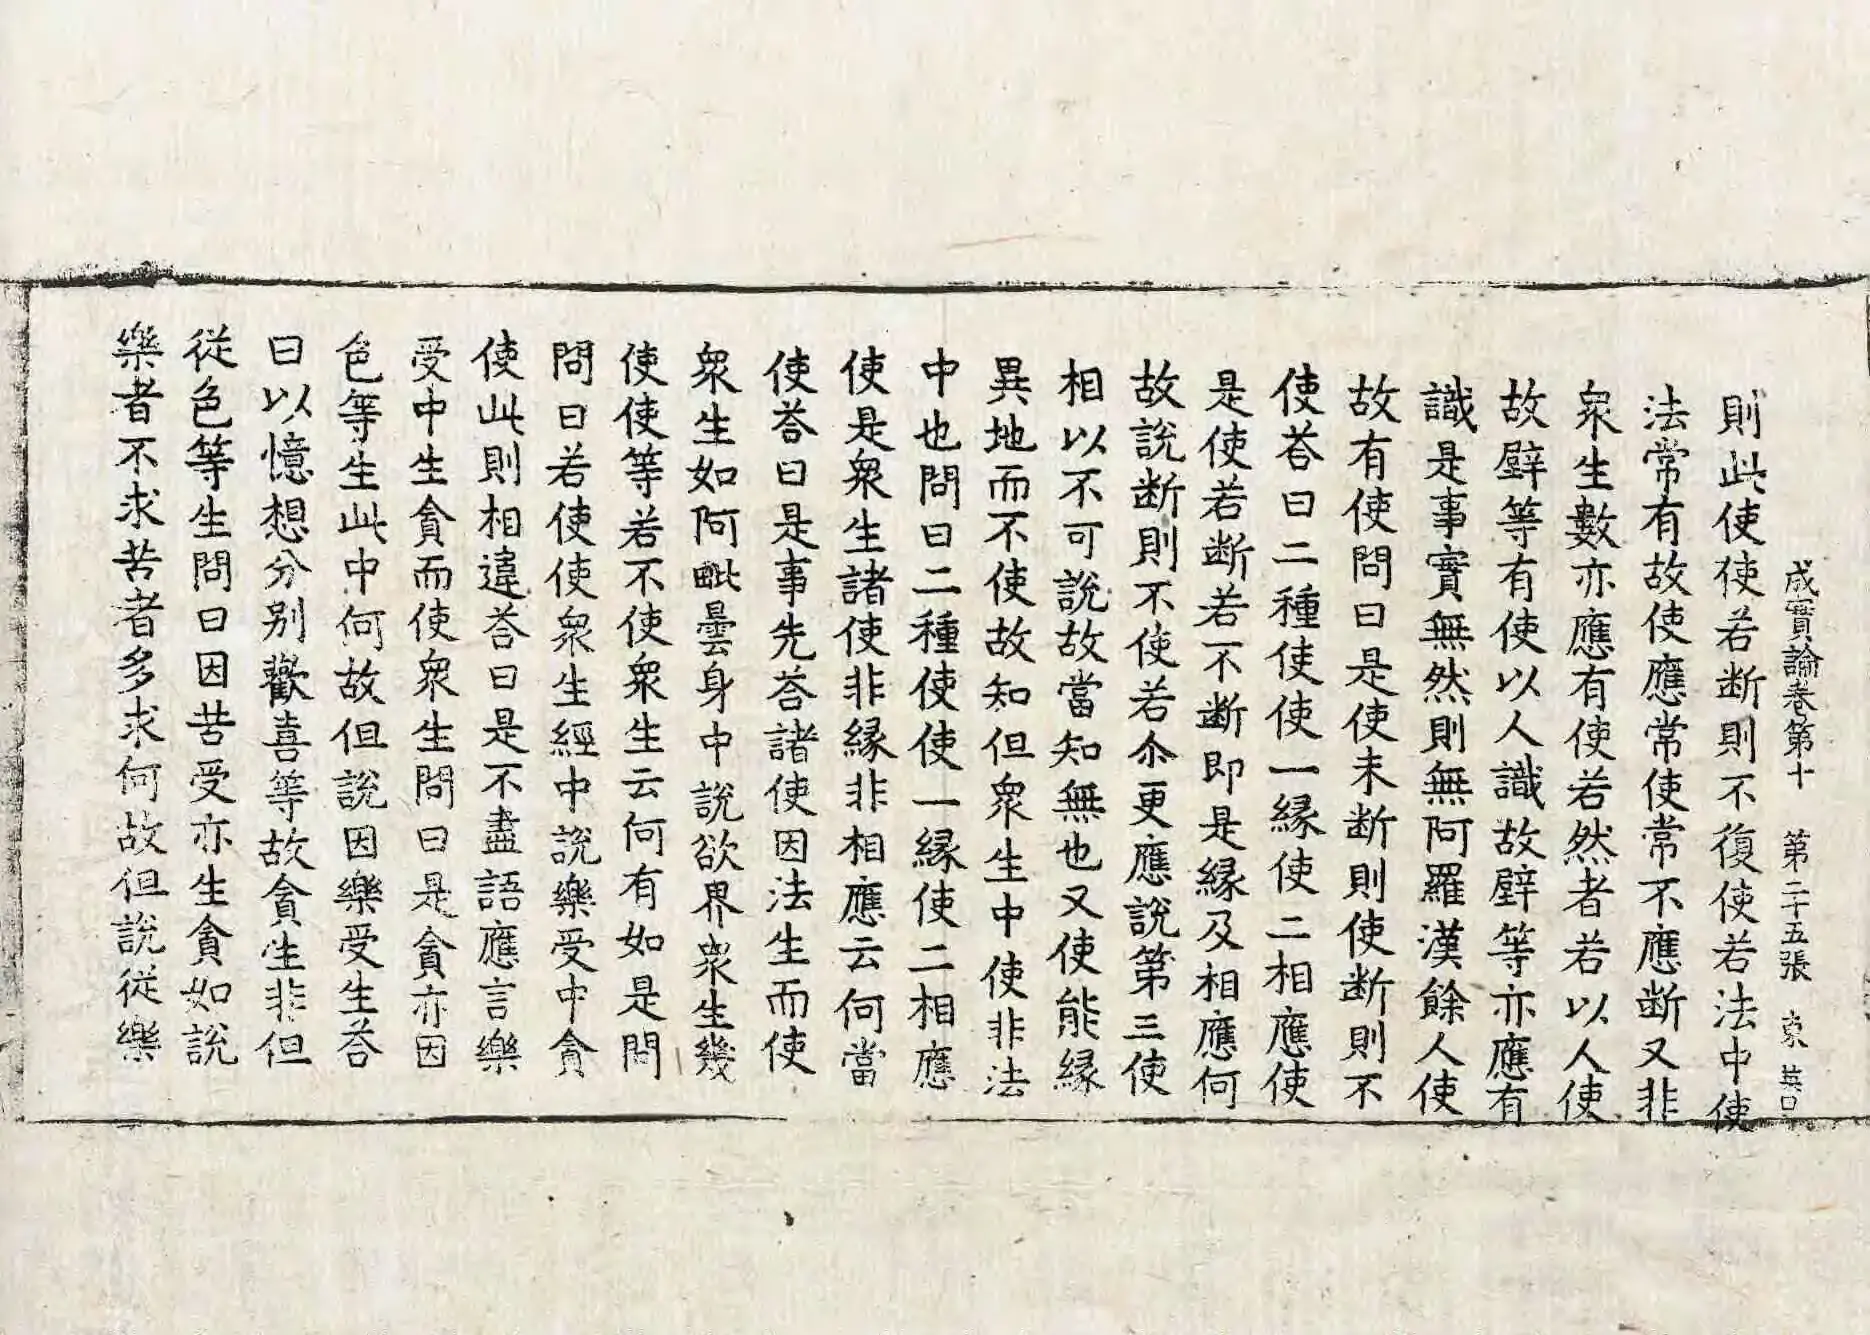 成實論卷第十　第二十五張　東
則此使使若断則不復使若法中使
法常有故使應常使常不應断又非
衆生數亦應有使若然者若以人使
故壁等有使以人識故壁等亦應有
識是事實無然則無阿羅漢餘人使
故有使問曰是使未断則使断則不
使荅曰二種使使一縁使二相應使
是使若断若不断即是縁及相應何
故說断則不使若尒更應說第三使
相以不可說故當知無也又使能縁
異地而不使故知但衆生中使非法
中也問曰二種使使一縁使二相應
使是衆生諸使非縁非相應云何當
使荅曰是事先荅諸使因法生而使
衆生如阿毗曇身中說欲界衆生幾
使使等若不使衆生云何有如是問
問曰若使使衆生經中說樂受中貪
使此則相違荅曰是不盡語應言樂
受中生貪而使衆生問曰是貪亦因
色等生此中何故但說因樂受生荅
曰以憶想分别歡喜等故貪生非但
從色等生問曰因苦受亦生貪如說
樂者不求苦者多求何故但說従樂